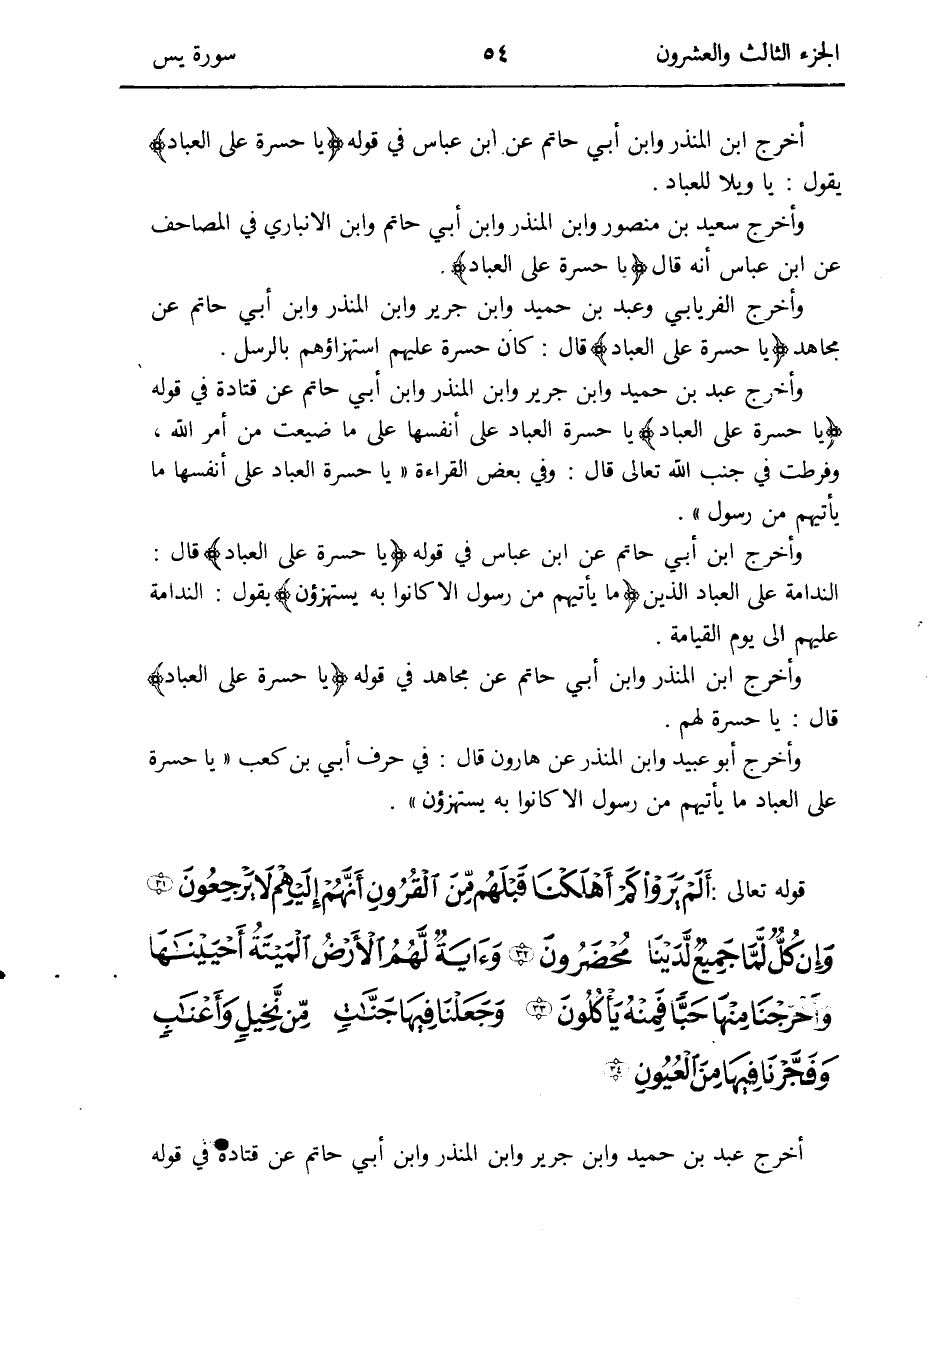 الجزء الثالث والعشرون ٥٤ سورة يس
أخرج ابن المنذر وابن أبي حاتم عن ابن عباس في قوله ﴿يا حسرة على العباد﴾
يقول : يا ويلا للعباد .
وأخرج سعيد بن منصور وابن المنذر وابن أبي حاتم وابن الانباري في المصاحف
عن ابن عباس أنه قال ﴿يا حسرة على العباد﴾ .
وأخرج الفريابي وعبد بن حميد وابن جرير وابن المنذر وابن أبي حاتم عن
مجاهد ﴿يا حسرة على العباد﴾ قال : كان حسرة عليهم استهزاؤهم بالرسل .
وأخرج عبد بن حميد وابن جرير وابن المنذر وابن أبي حاتم عن قتادة في قوله
﴿يا حسرة على العباد﴾ يا حسرة العباد على أنفسها على ما ضيعت من أمر الله ،
وفرطت في جنب الله تعالى قال : وفي بعض القراءة « يا حسرة العباد على أنفسها ما
يأتيهم من رسول » .
وأخرج ابن أبي حاتم عن ابن عباس في قوله ﴿يا حسرة على العباد﴾ قال :
الندامة على العباد الذين ﴿ما يأتيهم من رسول الا كانوا به يستهزؤن﴾ يقول : الندامة
عليهم الى يوم القيامة .
وأخرج ابن المنذر وابن أبي حاتم عن مجاهد في قوله ﴿يا حسرة على العباد﴾
قال : يا حسرة لهم .
وأخرج أبو عبيد وابن المنذر عن هارون قال : في حرف أبي بن كعب « يا حسرة
على العباد ما يأتيهم من رسول الا كانوا به يستهزؤن » .
قوله تعالى : أَلَمْ يَرَوْا۟ كَمْ أَهْلَكْنَا قَبْلَهُم مِّنَ ٱلْقُرُونِ أَنَّهُمْ إِلَيْهِمْ لَا يَرْجِعُونَ ٣١
وَإِن كُلٌّ لَّمَّا جَمِيعٌ لَّدَيْنَا مُحْضَرُونَ ٣٢ وَءَايَةٌ لَّهُمُ ٱلْأَرْضُ ٱلْمَيْتَةُ أَحْيَيْنَـٰهَا
وَأَخْرَجْنَا مِنْهَا حَبًّا فَمِنْهُ يَأْكُلُونَ ٣٣ وَجَعَلْنَا فِيهَا جَنَّـٰتٍ مِّن نَّخِيلٍ وَأَعْنَـٰبٍ
وَفَجَّرْنَا فِيهَا مِنَ ٱلْعُيُونِ ٣٤
أخرج عبد بن حميد وابن جرير وابن المنذر وابن أبي حاتم عن قتادة في قوله